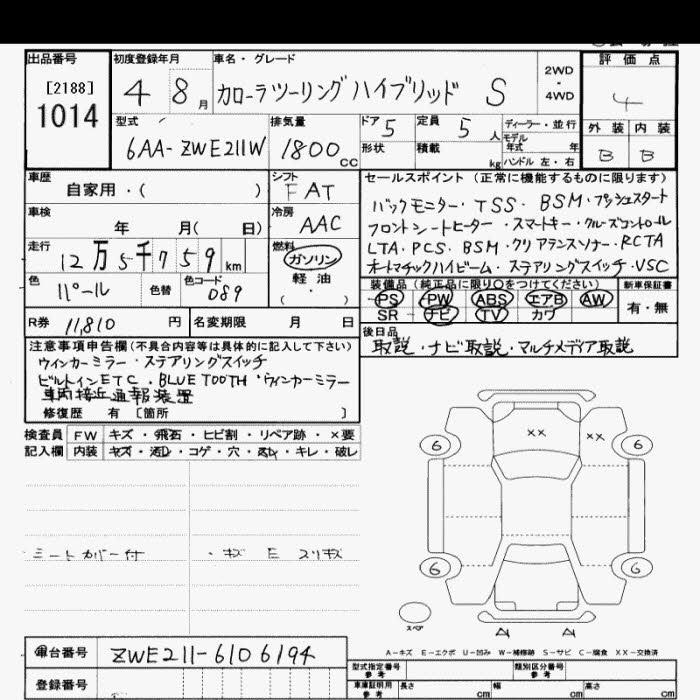 出品番号
[2188]
1014
初度登録年月
4 8月
車名・グレード
カローラツーリングハイブリッド S
2WD
・
4WD
評価点
4
外装 内装
B B
型式
6AA-ZWE211W
排気量
1800cc
ドア 5
定員 5人
形状
積載 kg
ディーラー・並行
モデル
年式 年
ハンドル 左・右
車歴
自家用・( )
シフト
FAT
車検
年 月( 日)
冷房
AAC
走行
12万5千759km
燃料
ガソリン
軽油
( ・ )
色
パール
色替
色コード
089
R券 11,810円
名変期限 月 日
セールスポイント (正常に機能するものに限ります)
バックモニター・TSS・BSM・プッシュスタート
フロントシートヒーター・スマートキー・クルーズコントロール
LTA・PCS・BSM・クリアランスソナー・RCTA
オートマチックハイビーム・ステアリングスイッチ・VSC
装備品(純正品に限り○をつけてください)
PS PW ABS エアB AW
SR ナビ TV カワ
新車保証書
有・無
後日品
取説・ナビ取説・マルチメディア取説
注意事項申告欄(不具合内容等は具体的に記入して下さい)
ウインカーミラー・ステアリングスイッチ
ビルトインETC・BLUETOOTH・ウインカーミラー
車両接近通報装置
修復歴 有 [箇所 ]
検査員 FW キズ・飛石・ヒビ割・リペア跡・×要
記入欄 内装 キズ・汚レ・コゲ・穴・スレ・キレ・破レ
シートカバー付
・キズ E スリキズ
XX
XX
6
6
6
6
スペア
A A
A-キズ E-エクボ U-凹み W-補修跡 S-サビ C-腐食 XX-交換済
車台番号
ZWE211-6106194
登録番号
型式指定番号
参考
類別区分番号
参考
車庫証明用
参考
長さ cm
幅 cm
高さ cm